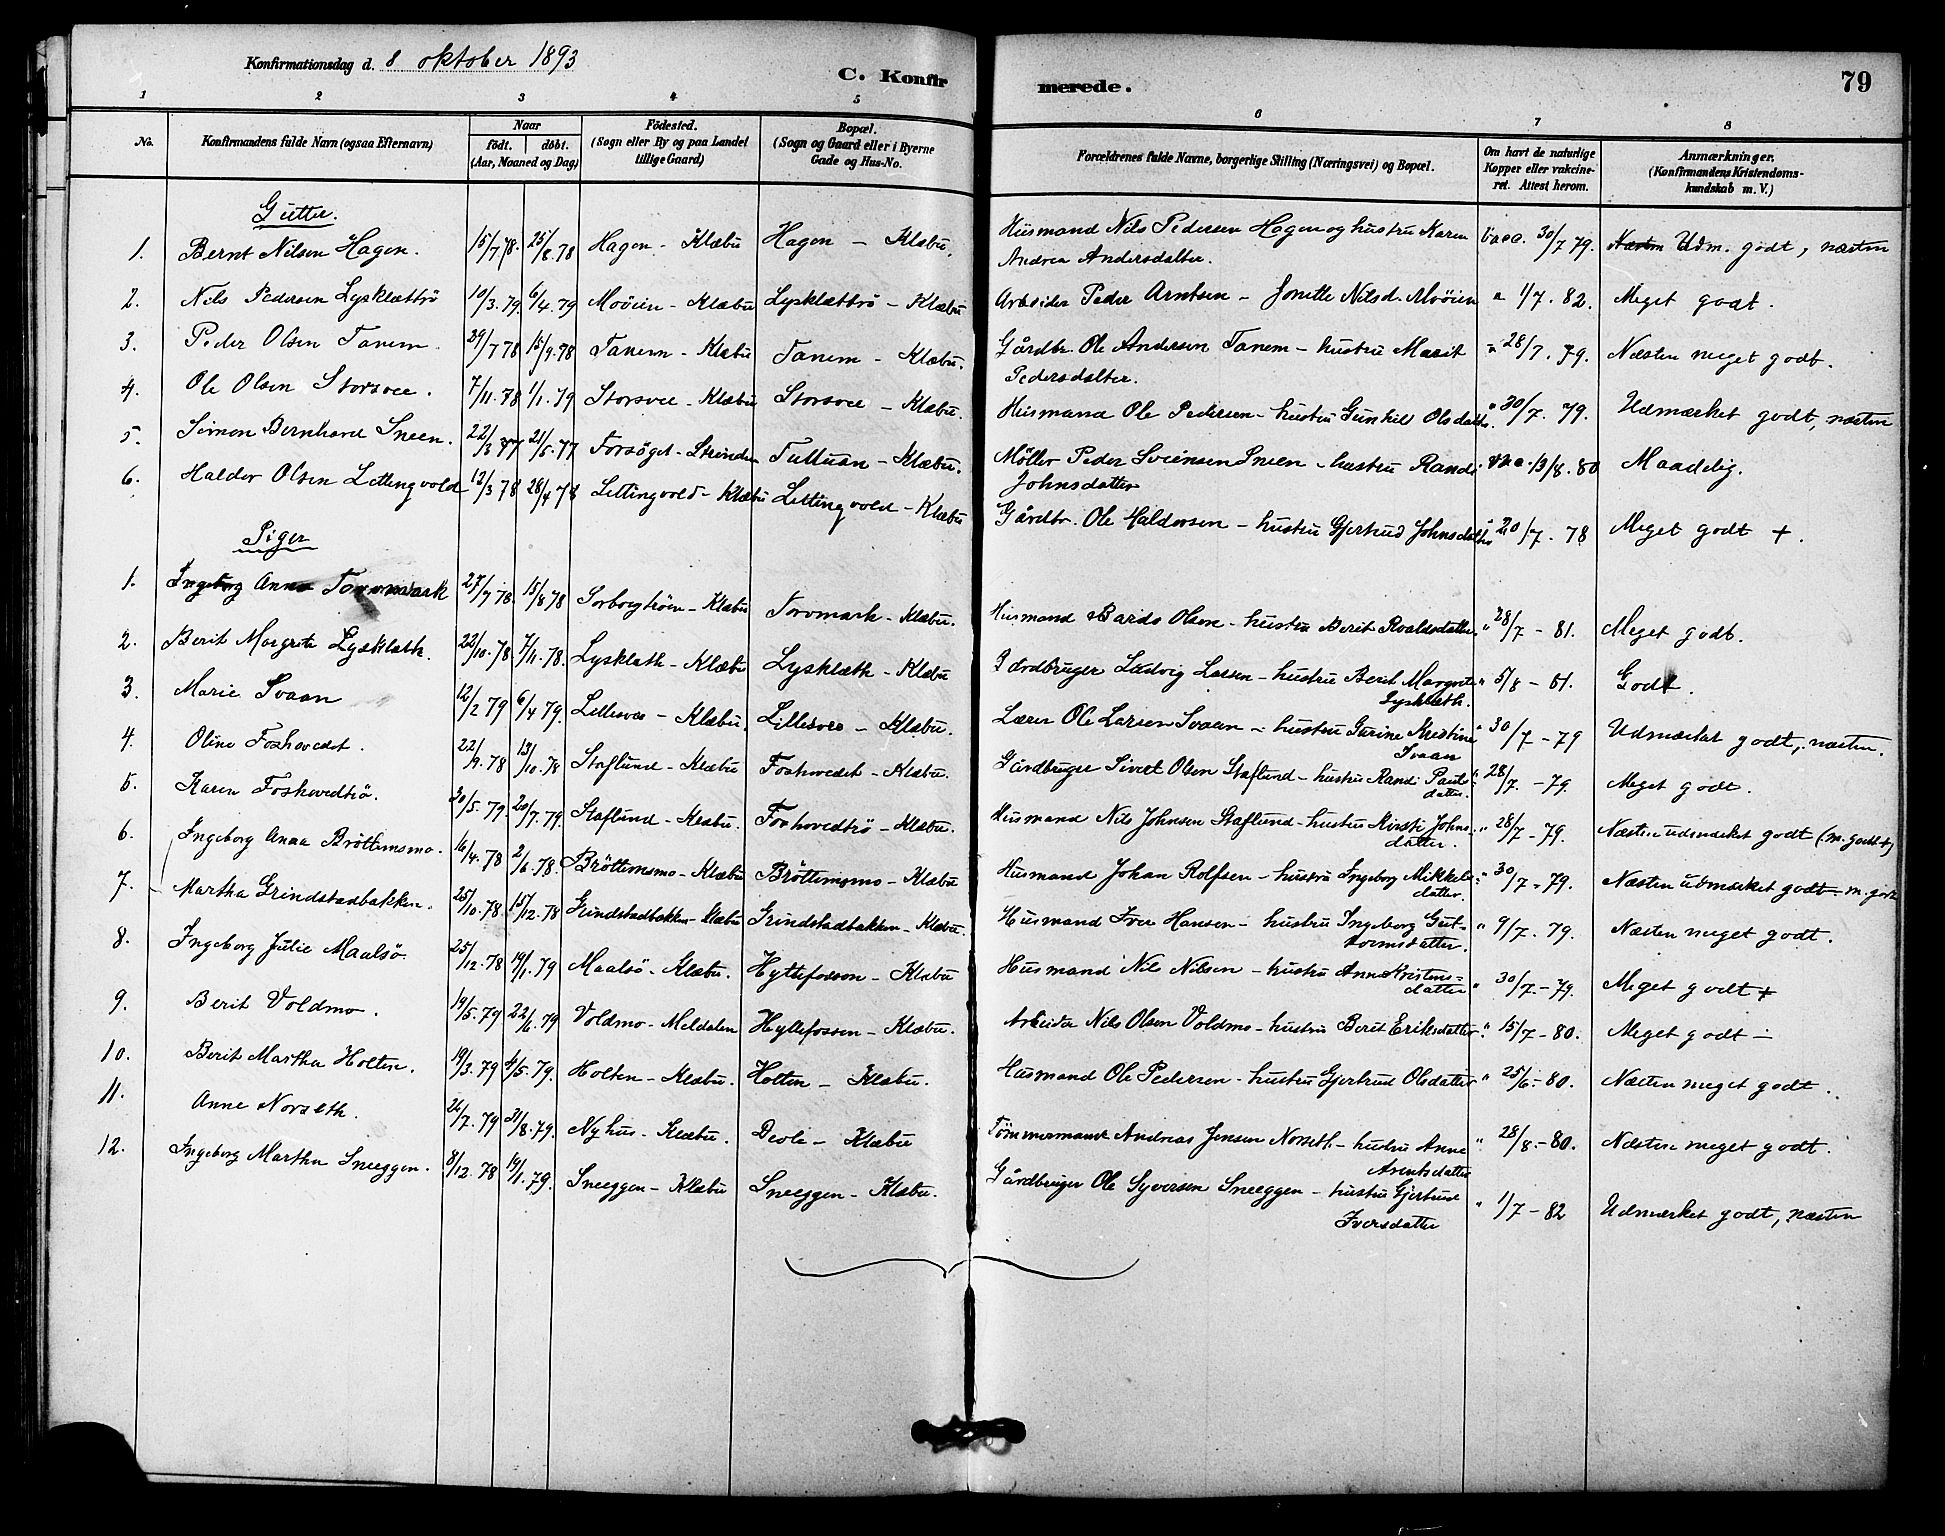 Konfirmationsdag d. 8 oktober 1893
C. Konfirmerede.
79
1 2 3 4 5 6 7 8
No. Konfirmandens fulde Navn (ogsaa Efternavn) Naar födt. döbt. (Aar, Maaned og Dag) Födested. (Sogn eller By og paa Landet tillige Gaard) Bopæl. (Sogn og Gaard eller i Byerne Gade og Hus-No. Forældrenes fulde Navne, borgerlige Stilling (Næringsvei) og Bopæl. Om havt de naturlige Kopper eller vakcineret. Attest herom. Anmærkninger. (Konfirmandens Kristendomskundskab m. V.)
Gutter.
1. Bernt Nilsen Hagen. 15/7 78. 25/8.78 Hagen - Klæbu Hagen - Klæbu. Husmand Nils Pedersen Hagen og hustru Karen Andrea Andersdatter. Vacc. 30/7 79. Næsten Udm. godt, næsten
2. Nils Pedersen Lysklættrö 10/3.79. 6/4.79 Moöien - Klæbu Lysklættrö - Klæbu Arbeider Peder Arntsen - Jonille Nilsd. Moöien " 1/7. 82. Meget godt.
3. Peder Olsen Tanem. 29/7 78 15/9.78 Tanem - Klæbu Tanem - Klæbu. Gårdbr. Ole Andersen Tanem - hustru Marit Pedersdatter. " 28/7. 79. Næsten meget godt.
4. Ole Olsen Storsvee. 7/11.78 1/1.79 Storsvee - Klæbu Storsvee - Klæbu. Husmand Ole Pedersen - hustru Gunhil Olsdatter. " 30/7. 79. Udmærket godt, næsten
5. Simon Bernhard Sneen. 22/3 77 21/5.77 Forsöget - Strinden Tulluan - Klæbu. Møller Peder Svensen Sneen - hustru Randi Johnsdatter Vac. 13/8. 80 Maadelig.
6. Haldor Olsen Lettingvold 12/3 78 28/4 78 Lettingvold - Klæbu Lettingvold - Klæbu Gårdbr. Ole Haldorsen - hustru Gjertrud Johnsdatter " 20/7. 78 Meget godt +.
Piger
1. Ingeborg Anna Tormark 27/7 78. 15/8 78 Sorborgtröen - Klæbu Tormark - Klæbu. Husmand Bards Olsen - hustru Berit Roaldsdatter. " 28/7 - 81. Meget godt.
2. Berit Margrete Lysklæth. 22/10.78 7/11.78. Lysklæth - Klæbu Lysklæth - Klæbu Gårdbruger Ludvig Lassen - hustru Berit Margrete Lysklæth. " 5/8 - 81. Godt.
3. Marie Svaan 12/2 79 6/4 79. Lillesvee - Klæbu. Lillesvee - Klæbu. Lærer Ole Larsen Svaan - hustru Gurine Kristine Svaan " 30/7 - 79 Udmærket godt, næsten.
4. Oline Foshovedet. 22/9.78 13/10.78 Staflund - Klæbu Foshovedet - Klæbu. Gårdbruger Sivert Olsen Staflund - hustru Randi Paulsdatter. " 28/7. - 79. Meget godt.
5. Karen Foshovedtrö. 30/5.79. 20/7.79. Staflund - Klæbu. Foshovedtrö - Klæbu. Husmand Nils Johnsen Staflund - hustru Kirsti Johnsdatter. " 28/7 - 79. Næsten udmærket godt (m. godt +)
6. Ingeborg Anna Bröttemsmo. 16/4.78 2/6.78. Bröttemsmo - Klæbu Bröttemsmo - Klæbu Husmand Johan Rolfsen - hustru Ingeborg Mikkelsdatter. " 30/7 - 79. Næsten udmærket godt - m. godt
7. Martha Grindstadbakken. 25/10.78. 15/12.78 Grindstadbakken - Klæbu Grindstadbakken - Klæbu. Husmand Iver Hansen - hustru Ingeborg Guttormsdatter. " 9/7. 79. Næsten meget godt.
8. Ingeborg Julie Maalsö 25/12.78 19/1.79 Maalsö - Klæbu. Hyttefossen - Klæbu Husmand Nils Nilsen - hustru Anne Kristensdatter " 30/7. - 79. Meget godt +
9. Berit Voldmo. 19/5.79 22/6.79 Voldmo - Meldalen Hyttefossen - Klæbu. Arbeider Nils Olsen Voldmo - hustru Berit Eriksdatter. " 15/7 - 80. Meget godt -
10. Berit Martha Holten. 19/3.79 4/5.79. Holten - Klæbu. Holten - Klæbu. Husmand Ole Pedersen - hustru Gjertrud Olsdatter " 25/6 - 80. Næsten meget godt.
11. Anne Norseth. 26/7.79 31/8.79. Nyhus - Klæbu. Devle - Klæbu Tømmermand Andreas Jensen Norseth - hustru Anne Arentsdatter " 28/8. - 80. Næsten meget godt.
12. Ingeborg Martha Sneeggen. 8/12.78 19/1.79. Sneeggen - Klæbu Sneeggen - Klæbu. Gårdbruger Ole Syversen Sneeggen - hustru Gjertrud Iversdatter " 1/7 - 82 Udmærket godt, næsten